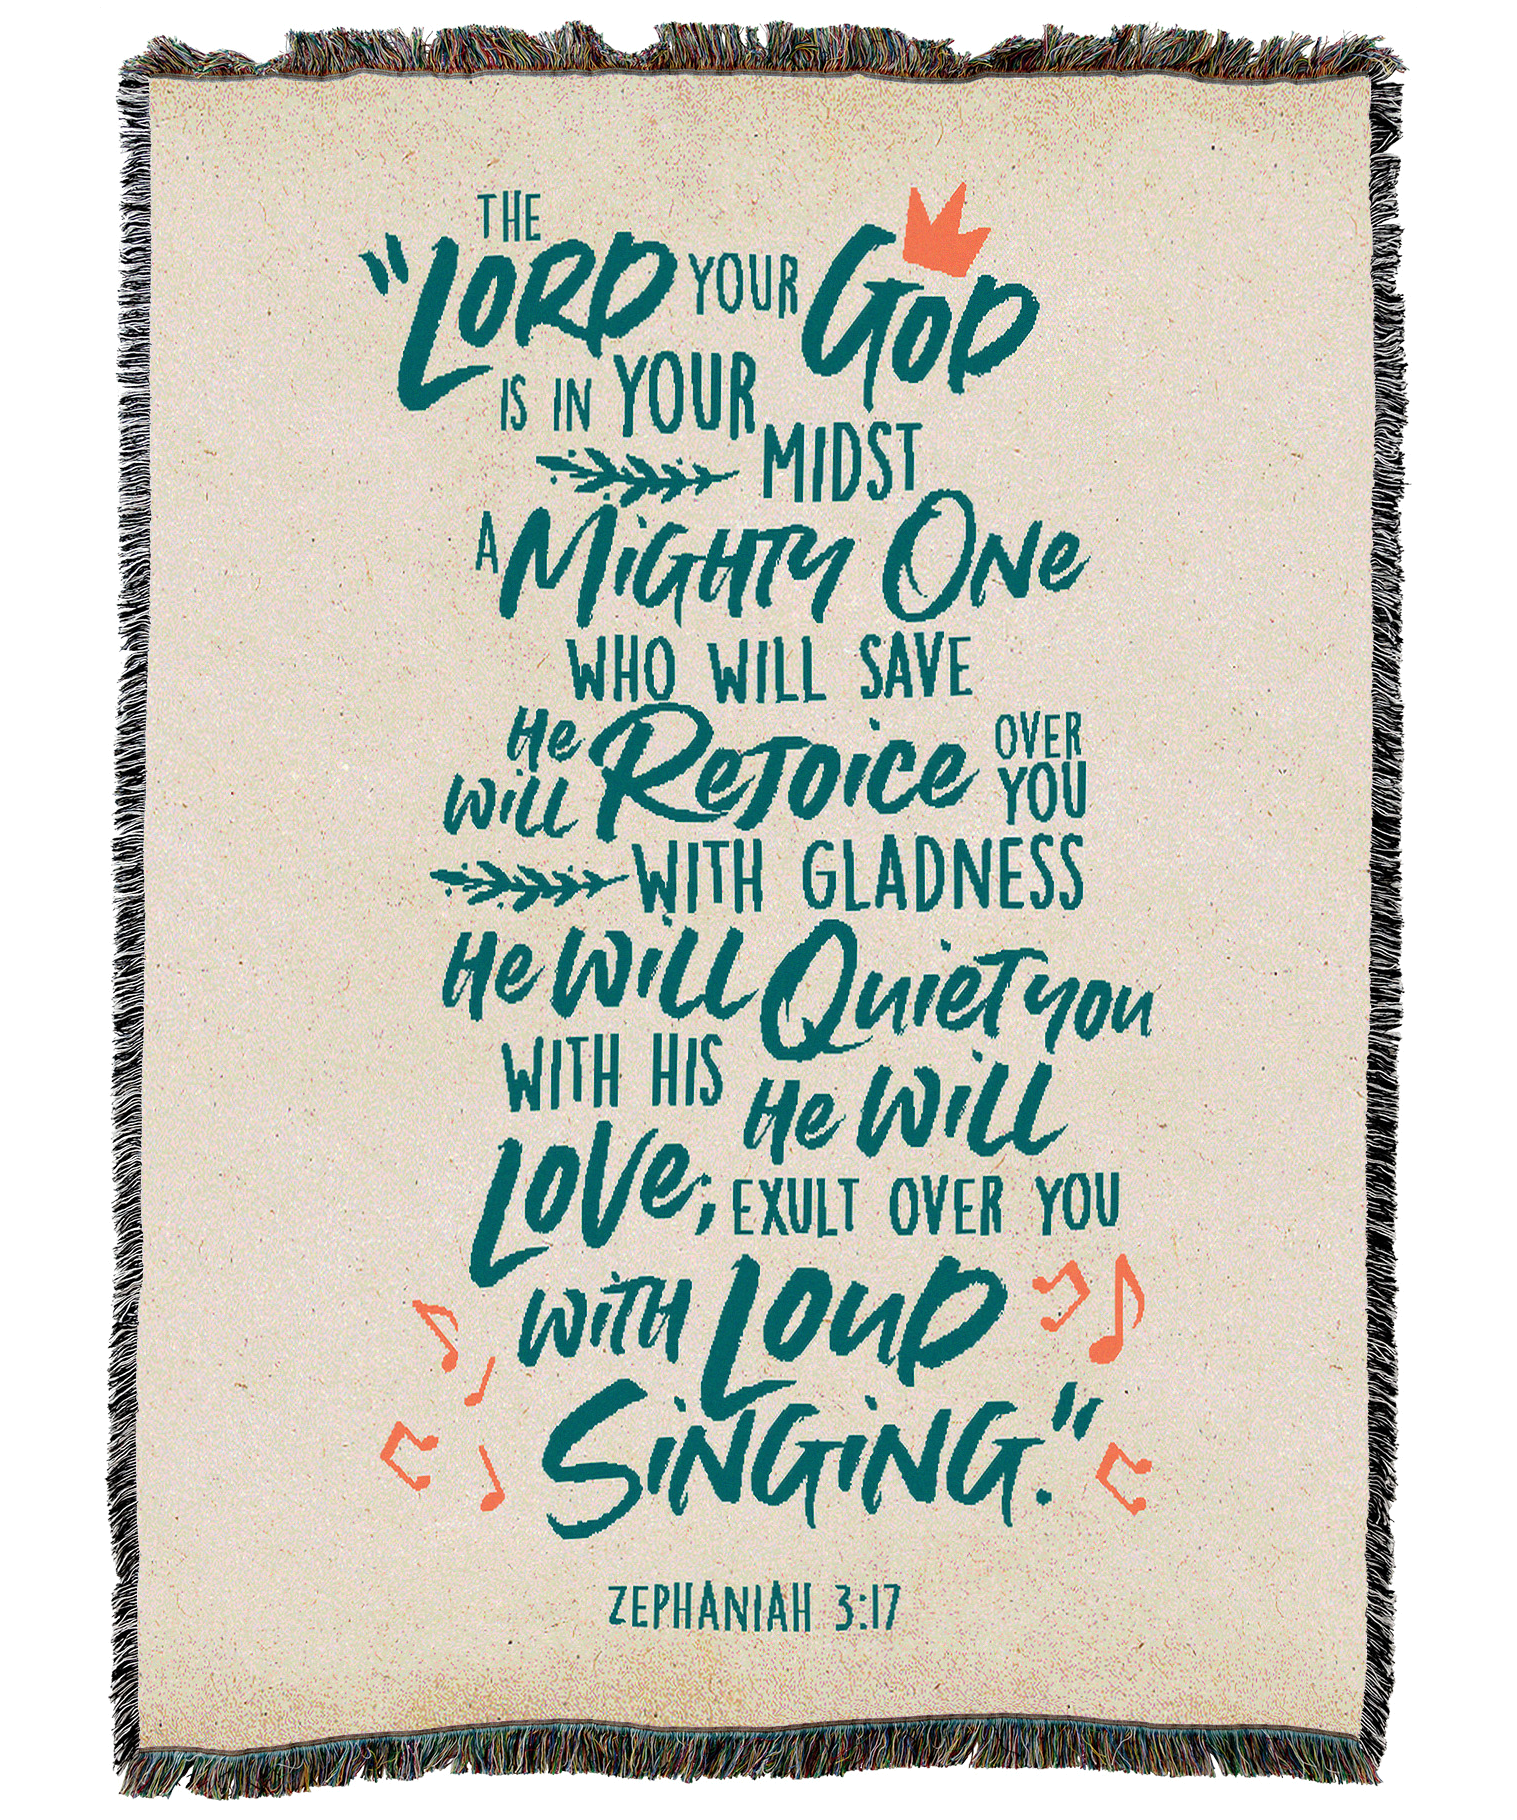 THE
"LORD YOUR GOD
IS IN YOUR
MIDST
A MIGHTY ONE
WHO WILL SAVE
He Will RejOice OVER YOU
WITH GLADNESS
He Will QuieT you
WITH HIS
LOVe; He Will
EXULT OVER YOU
WiTH LOUD
SiNGiNG."
ZEPHANIAH 3:17